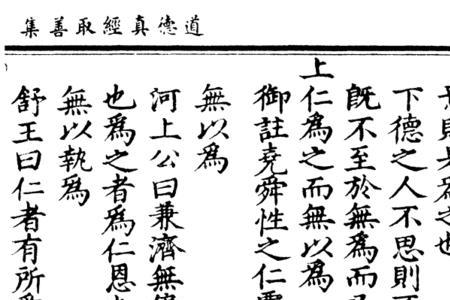 道德真經取善集
為之也
下德之人不思則
既不至於無為而
上仁為之而無以為
御註堯舜性之仁
無以為
河上公曰兼濟無
也為之者為仁恩
無以執為
舒王曰仁者有所